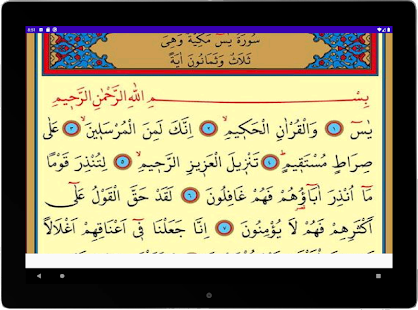 8:51
سُورَةُ يٰسٓ مَكِّيَّةٌ وَهِيَ
ثَلَاثٌ وَثَمَانُونَ اٰيَةً
بِسْمِ اللّٰهِ الرَّحْمٰنِ الرَّحٖيمِ
يٰسٓ ﴿١﴾ وَالْقُرْاٰنِ الْحَكٖيمِۙ ﴿٢﴾ اِنَّكَ لَمِنَ الْمُرْسَلٖينَۙ ﴿٣﴾ عَلٰى
صِرَاطٍ مُسْتَقٖيمٍؕ ﴿٤﴾ تَنْزٖيلَ الْعَزٖيزِ الرَّحٖيمِۙ ﴿٥﴾ لِتُنْذِرَ قَوْمًا
مَٓا اُنْذِرَ اٰبَٓاؤُ۬هُمْ فَهُمْ غَافِلُونَ ﴿٦﴾ لَقَدْ حَقَّ الْقَوْلُ عَلٰٓى
اَكْثَرِهِمْ فَهُمْ لَا يُؤْمِنُونَ ﴿٧﴾ اِنَّا جَعَلْنَا فٖٓي اَعْنَاقِهِمْ اَغْلَالًا